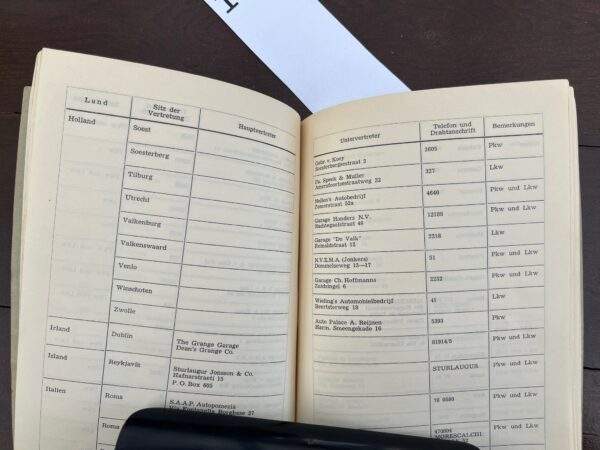 Land
Sitz der
Vertretung
Hauptvertreter
Holland
Soest
Soesterberg
Tilburg
Utrecht
Valkenburg
Valkenswaard
Venlo
Winschoten
Zwolle
Irland
Dublin
The Grange Garage
Dean's Grange Co.
Island
Reykjavik
Sturlaugur Jonsson & Co.
Hafnarstraeti 15
P. O. Box 605
Italien
Roma
S.A.A.P. Autopomezia
Roma
Untervertreter
Telefon und
Drahtanschrift
Bemerkungen
Gebr. v. Kooy
Soesterbergsestraat 3
2605
Pkw
Fa. Speek & Muller
Amersfoortsestraatweg 22
327
Lkw
Hellen's Autobedrijf
Zomerstraat 52a
4646
Pkw und Lkw
Garage Honders N.V.
Nachtegaalstraat 46
12189
Pkw und Lkw
Garage "De Valk"
Reinaldstraat 12
2218
Lkw
N.V.E.M.A. (Jonkers)
Dommelseweg 13—17
51
Pkw und Lkw
Garage Ch. Hoffmanns
Zuidsingel 6
2232
Pkw und Lkw
Wieling's Automobielbedrijf
Beertsterweg 18
41
Lkw
Auto Palace A. Reijnen
Harm. Smeengekade 16
5393
Pkw
81914/5
Pkw und Lkw
STURLAUGUR
Pkw und Lkw
Pkw und Lkw
470604
MORESCALCHI
Pkw und Lkw